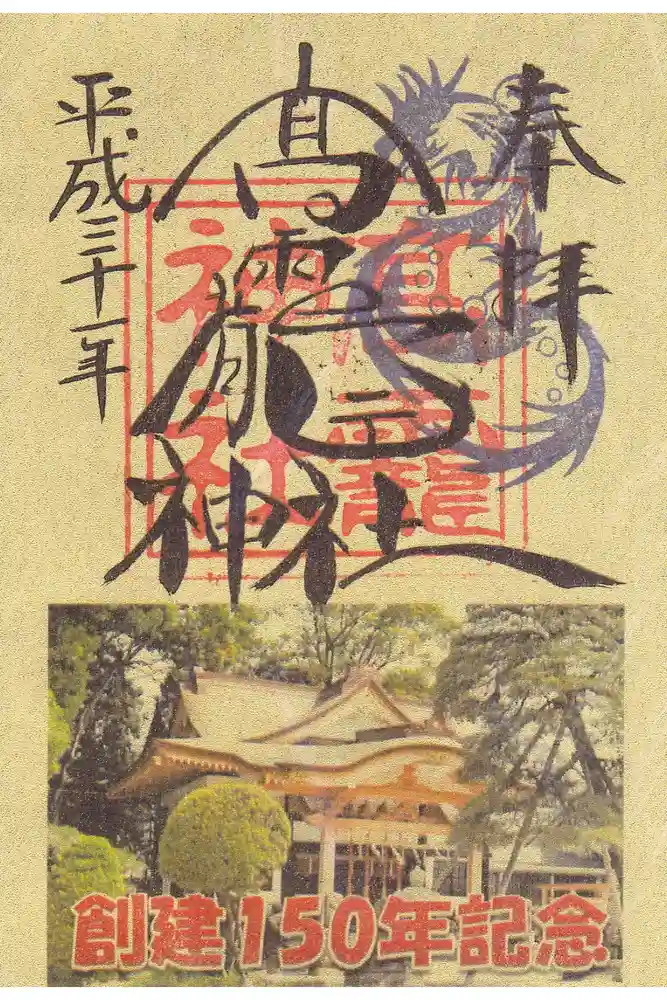 奉拝
高靇神社
平成三十一年
高靇
神社
創建150年記念